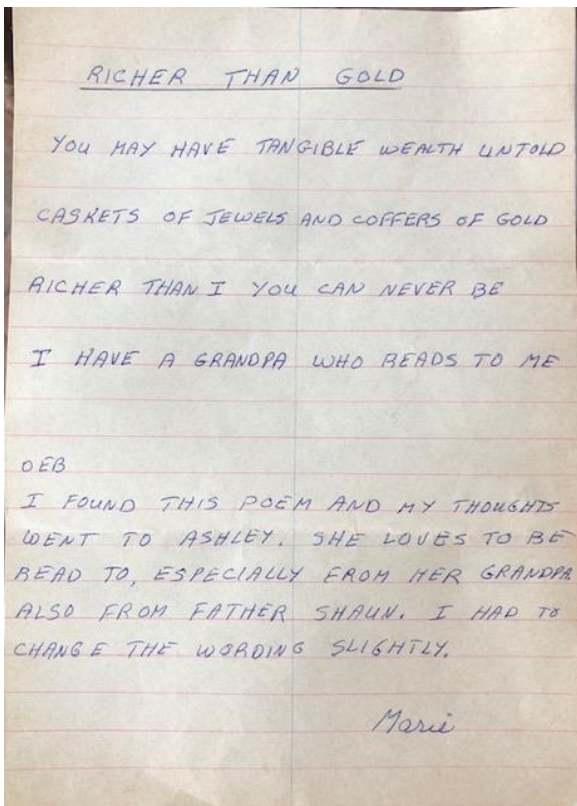 RICHER THAN GOLD
YOU MAY HAVE TANGIBLE WEALTH UNTOLD
CASKETS OF JEWELS AND COFFERS OF GOLD
RICHER THAN I YOU CAN NEVER BE
I HAVE A GRANDPA WHO READS TO ME
DEB
I FOUND THIS POEM AND MY THOUGHTS
WENT TO ASHLEY. SHE LOVES TO BE
READ TO, ESPECIALLY FROM HER GRANDPA
ALSO FROM FATHER SHAUN. I HAD TO
CHANGE THE WORDING SLIGHTLY.
Marie